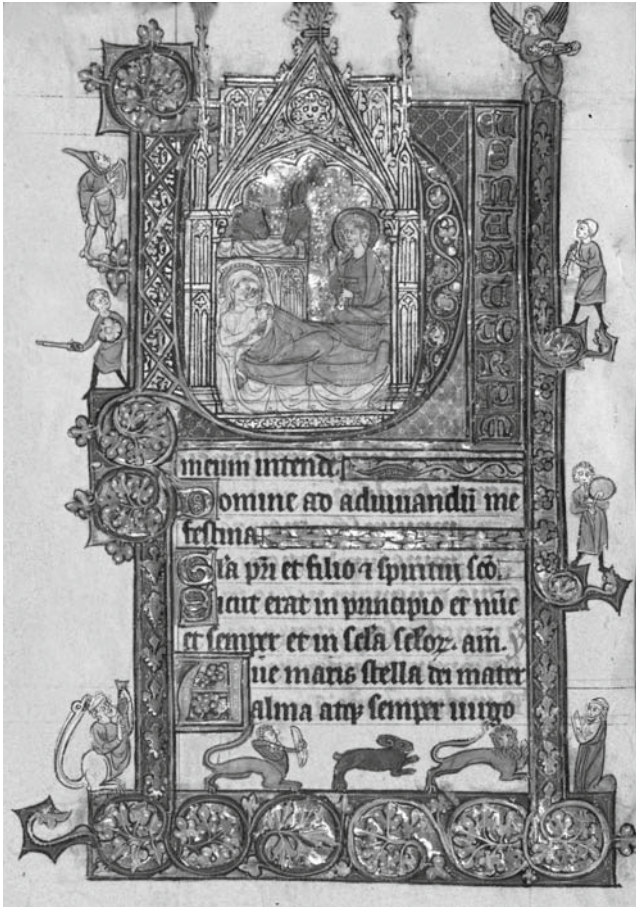 meum intende.
Domine ad adiuuandū me
festina.
Gl̄a pr̄i et filio ⁊ spiritui sc̄o.
Sicut erat in principio et nūc
et semper et in scl̄a scl̄oꝝ. am̄.
Aue maris stella dei mater
alma atqꝫ semper uirgo